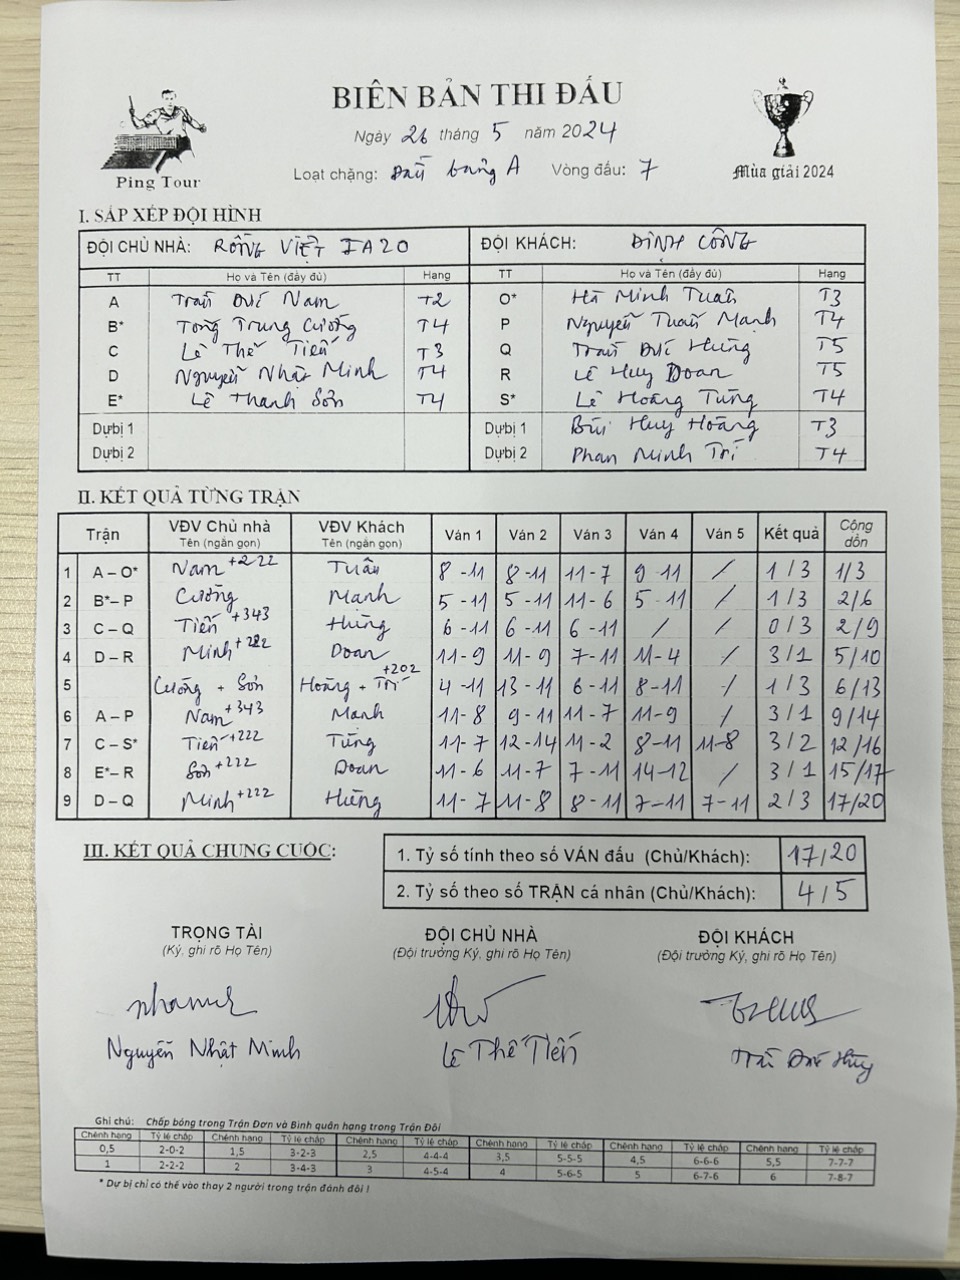 BIÊN BẢN THI ĐẤU
Ngày 26 tháng 5 năm 2024
Ping Tour
Loạt chặng: Đấu bảng A Vòng đấu: 7
Mùa giải 2024
I. SẮP XẾP ĐỘI HÌNH
ĐỘI CHỦ NHÀ: RỒNG VIỆT IA20 ĐỘI KHÁCH: ĐỊNH CÔNG
TT Họ và Tên (đầy đủ) Hạng TT Họ và Tên (đầy đủ) Hạng
A Trần Đức Nam T2 O* Hà Minh Tuấn T3
B* Tống Trung Cường T4 P Nguyễn Tuấn Mạnh T4
C Lê Thế Tiến T3 Q Trần Đức Hùng T5
D Nguyễn Nhật Minh T4 R Lê Huy Doan T5
E* Lê Thanh Sơn T4 S* Lê Hoàng Tùng T4
Dự bị 1 Dự bị 1 Bùi Huy Hoàng T3
Dự bị 2 Dự bị 2 Phan Minh Trí T4
II. KẾT QUẢ TỪNG TRẬN
Trận VĐV Chủ nhà Tên (ngắn gọn) VĐV Khách Tên (ngắn gọn) Ván 1 Ván 2 Ván 3 Ván 4 Ván 5 Kết quả Cộng dồn
1 A – O* Nam +222 Tuấn 8-11 8-11 11-7 9-11 / 1/3 1/3
2 B* – P Cường Mạnh 5-11 5-11 11-6 5-11 / 1/3 2/6
3 C – Q Tiến +343 Hùng 6-11 6-11 6-11 / / 0/3 2/9
4 D – R Minh +222 Doan 11-9 11-9 7-11 11-4 / 3/1 5/10
5 Cường + Sơn Hoàng + Trí +202 4-11 13-11 6-11 8-11 / 1/3 6/13
6 A – P Nam +343 Mạnh 11-8 9-11 11-7 11-9 / 3/1 9/14
7 C – S* Tiến +222 Tùng 11-7 12-14 11-2 8-11 11-8 3/2 12/16
8 E* – R Sơn +222 Doan 11-6 11-7 7-11 14-12 / 3/1 15/17
9 D – Q Minh +222 Hùng 11-7 11-8 8-11 7-11 7-11 2/3 17/20
III. KẾT QUẢ CHUNG CUỘC:
1. Tỷ số tính theo số VÁN đấu (Chủ/Khách): 17/20
2. Tỷ số theo số TRẬN cá nhân (Chủ/Khách): 4/5
TRỌNG TÀI ĐỘI CHỦ NHÀ ĐỘI KHÁCH
(Ký, ghi rõ Họ Tên) (Đội trưởng Ký, ghi rõ Họ Tên) (Đội trưởng Ký, ghi rõ Họ Tên)
Nguyễn Nhật Minh Lê Thế Tiến Trần Đức Hùng
Ghi chú: Chấp bóng trong Trận Đơn và Bình quân hạng trong Trận Đôi
Chênh hạng Tỷ lệ chấp Chênh hạng Tỷ lệ chấp Chênh hạng Tỷ lệ chấp Chênh hạng Tỷ lệ chấp Chênh hạng Tỷ lệ chấp Chênh hạng Tỷ lệ chấp
0,5 2-0-2 1,5 3-2-3 2,5 4-4-4 3,5 5-5-5 4,5 6-6-6 5,5 7-7-7
1 2-2-2 2 3-4-3 3 4-5-4 4 5-6-5 5 6-7-6 6 7-8-7
* Dự bị chỉ có thể vào thay 2 người trong trận đánh đôi !